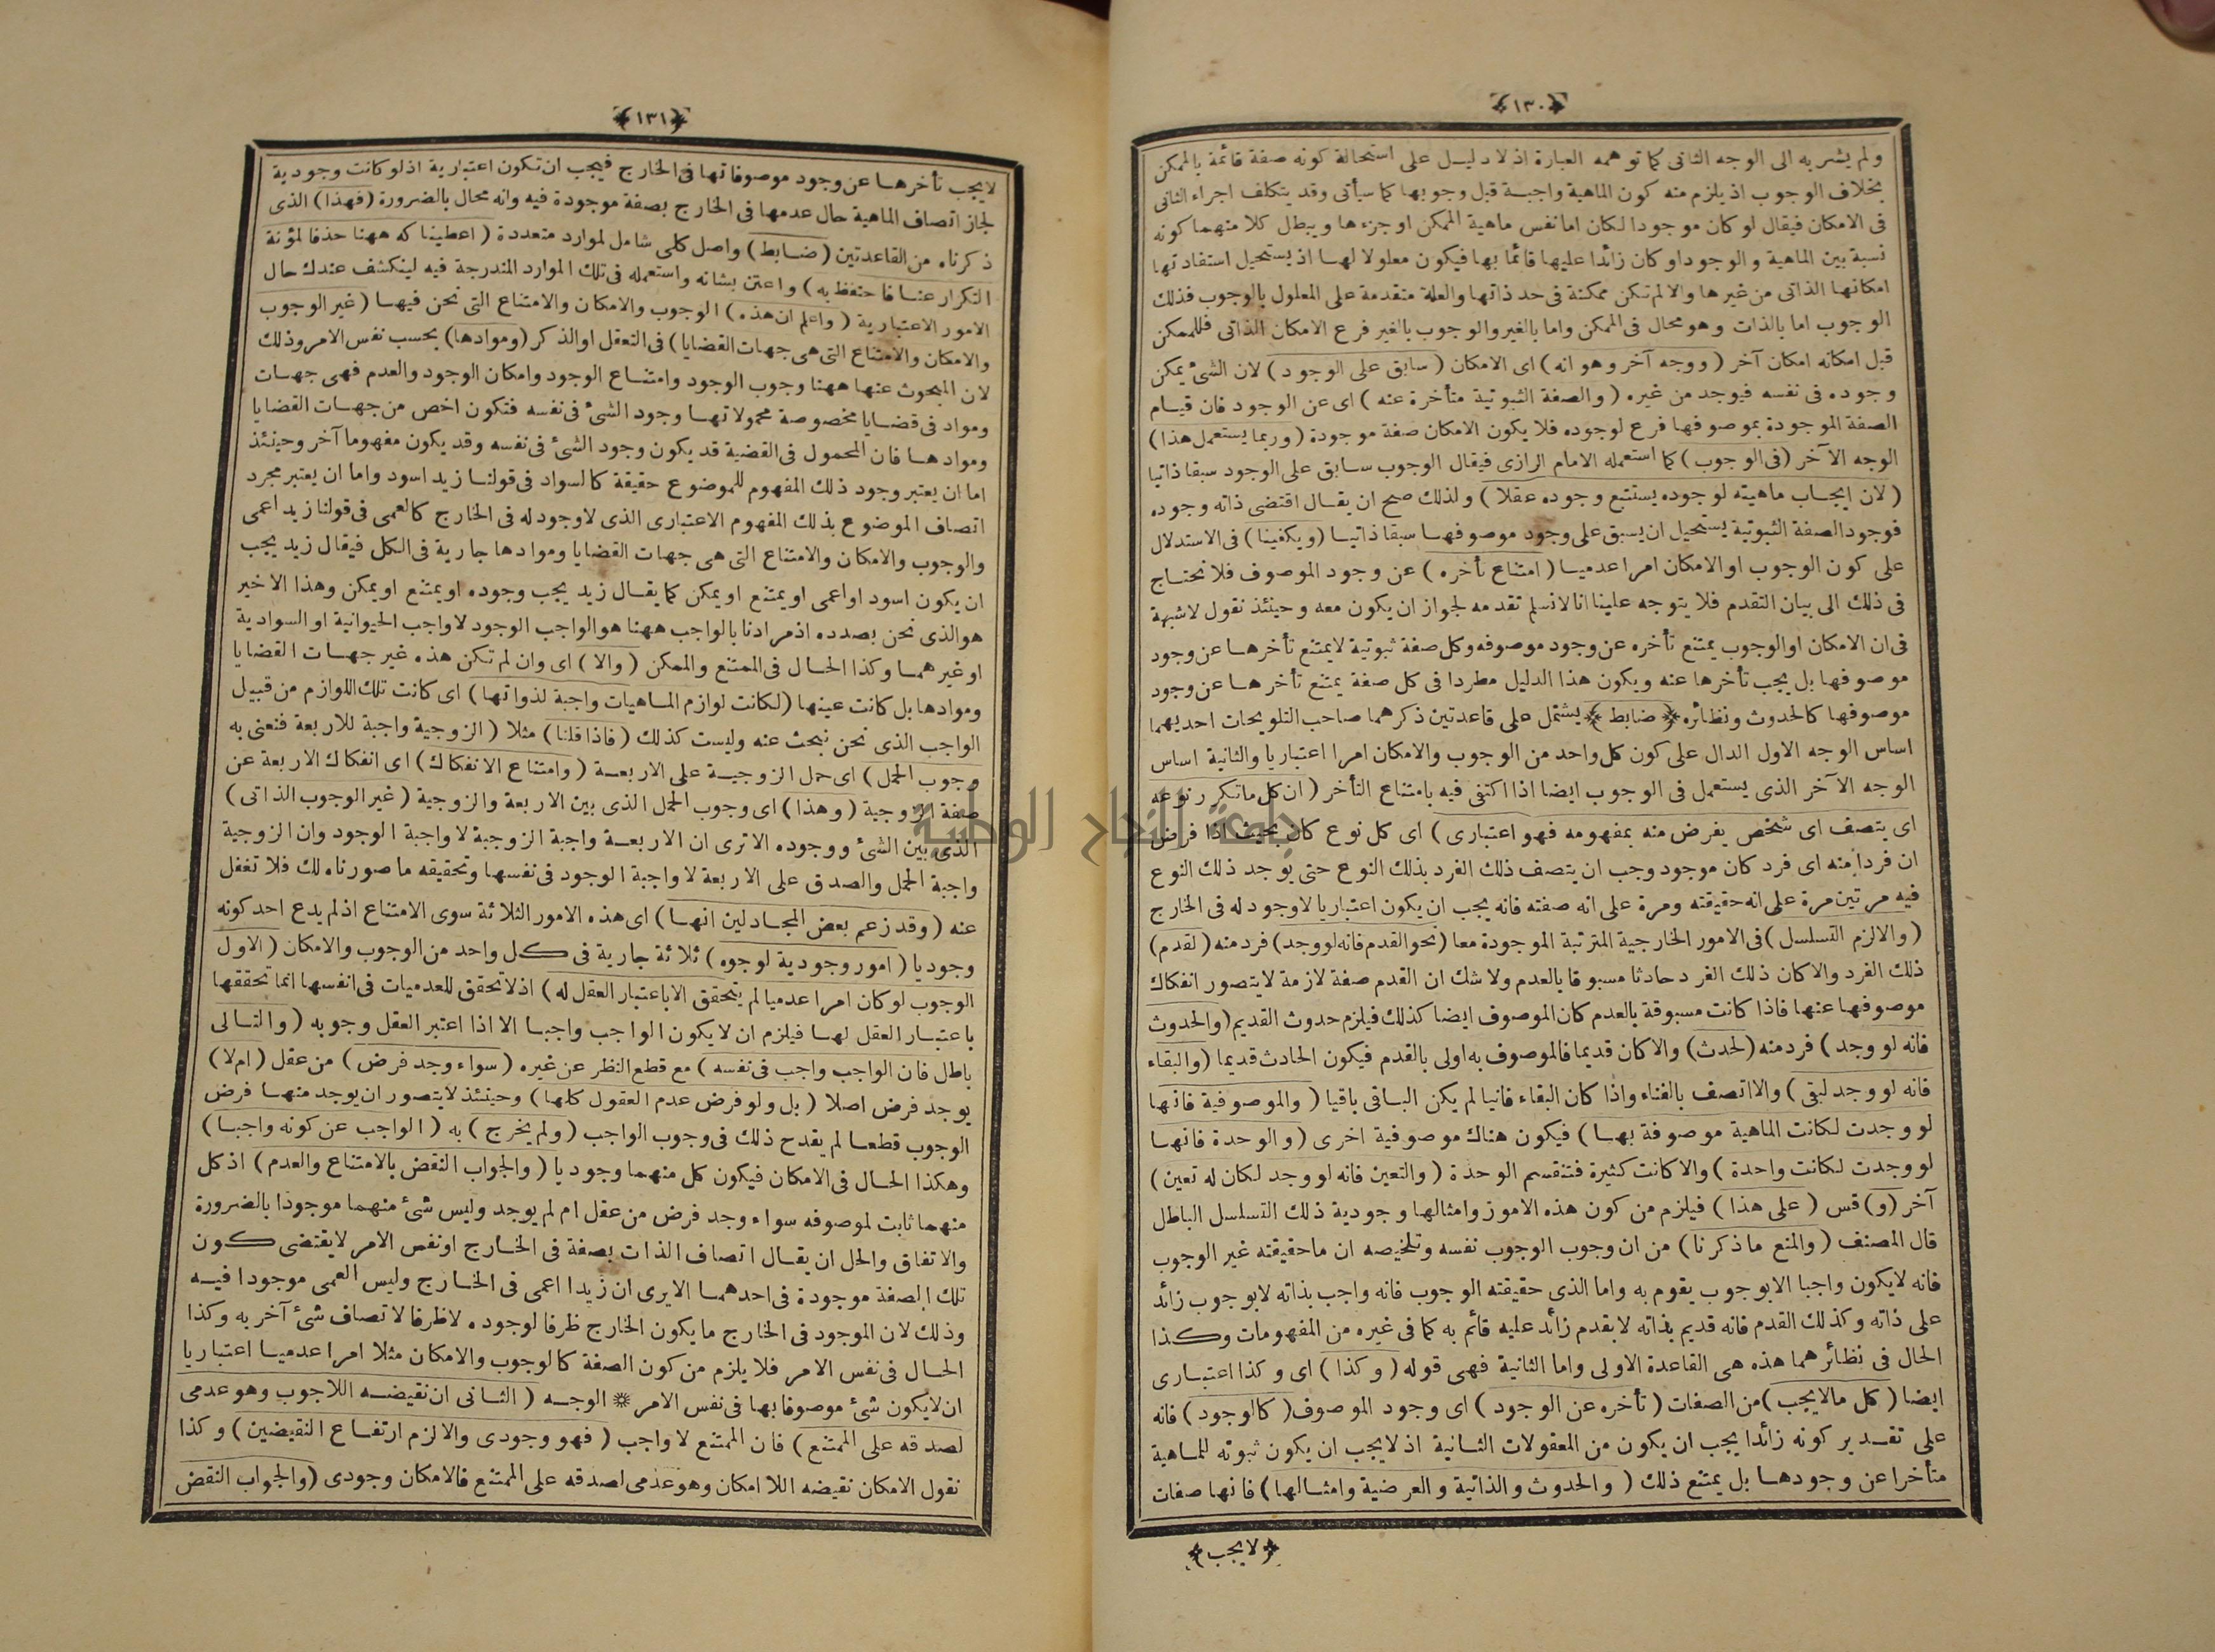 ﴿١٣٠﴾
ولم يشربه الى الوجه الثانى كما توهمه العبارة اذ لا دليل على استحالة كونه صفة قائمة بالممكن
بخلاف الوجوب اذ يلزم منه كون الماهية واجبة قبل وجوبها كما سيأتى وقد يتكلف اجراء الثانى
فى الامكان فيقال لو كان موجودا لكان اما نفس ماهية الممكن او جزءها ويبطل كلا منهما كونه
نسبة بين الماهية والوجود او كان زائدا عليها قائما بها فيكون معلولا لها اذ يستحيل استفادتها
امكانها الذاتى من غيرها والا لم تكن ممكنة فى حد ذاتها والعلة متقدمة على المعلول بالوجوب فذلك
الوجوب اما بالذات وهو محال فى الممكن واما بالغير والوجوب بالغير فرع الامكان الذاتى فللممكن
قبل امكانه امكان آخر (ووجه آخر وهو انه) اى الامكان (سابق على الوجود) لان الشئ يمكن
وجوده فى نفسه فيوجد من غيره (والصفة الثبوتية متأخرة عنه) اى عن الوجود فان قيام
الصفة الموجودة بموصوفها فرع لوجوده فلا يكون الامكان صفة موجودة (وربما يستعمل هذا)
الوجه الآخر (فى الوجوب) كما استعمله الامام الرازى فيقال الوجوب سابق على الوجود سبقا ذاتيا
(لان ايجاب ماهيته لوجوده يستتبع وجوده عقلا) ولذلك صح ان يقال اقتضى ذاته وجوده
فوجود الصفة الثبوتية يستحيل ان يسبق على وجود موصوفها سبقا ذاتيا (ويكفينا) فى الاستدلال
على كون الوجوب او الامكان امرا عدميا (امتناع تأخره) عن وجود الموصوف فلا نحتاج
فى ذلك الى بيان التقدم فلا يتوجه علينا انا لا نسلم تقدمه لجواز ان يكون معه وحينئذ نقول لاشبهة
فى ان الامكان او الوجوب يمتنع تأخره عن وجود موصوفه وكل صفة ثبوتية لا يمتنع تأخرها عن وجود
موصوفها بل يجب تأخرها عنه ويكون هذا الدليل مطردا فى كل صفة يمتنع تأخرها عن وجود
موصوفها كالحدوث ونظائره ﴿ضابط﴾ يشتمل على قاعدتين ذكرهما صاحب التلويحات احديهما
اساس الوجه الاول الدال على كون كل واحد من الوجوب والامكان امرا اعتباريا والثانية اساس
الوجه الآخر الذى يستعمل فى الوجوب ايضا اذا اكتفى فيه بامتناع التأخر (ان كل ما تكرر نوعه
اى يتصف اى شخص يفرض منه بمفهومه فهو اعتبارى) اى كل نوع كان بحيث اذا فرض
ان فردا منه اى فرد كان موجود وجب ان يتصف ذلك الفرد بذلك النوع حتى يوجد ذلك النوع
فيه مرتين مرة على انه حقيقته ومرة على انه صفته فانه يجب ان يكون اعتباريا لا وجود له فى الخارج
(والا لزم التسلسل) فى الامور الخارجية المترتبة الموجودة معا (نحو القدم فانه لو وجد) فرد منه (لقدم)
ذلك الفرد والا كان ذلك الفرد حادثا مسبوقا بالعدم ولا شك ان القدم صفة لازمة لا يتصور انفكاك
موصوفها عنها فاذا كانت مسبوقة بالعدم كان الموصوف ايضا كذلك فيلزم حدوث القديم (والحدوث
فانه لو وجد) فرد منه (لحدث) والا كان قديما فالموصوف به اولى بالقدم فيكون الحادث قديما (والبقاء
فانه لو وجد لبقى) والا اتصف بالفناء واذا كان البقاء فانيا لم يكن الباقى باقيا (والموصوفية فانها
لو وجدت لكانت الماهية موصوفة بها) فيكون هناك موصوفية اخرى (والوحدة فانها
لو وجدت لكانت واحدة) والا كانت كثيرة فتنقسم الوحدة (والتعين فانه لو وجد لكان له تعين)
آخر (و) قس (على هذا) فيلزم من كون هذه الامور وامثالها وجودية ذلك التسلسل الباطل
قال المصنف (والمنع ما ذكرنا) من ان وجوب الوجوب نفسه وتلخيصه ان ما حقيقته غير الوجوب
فانه لا يكون واجبا الا بوجوب يقوم به واما الذى حقيقته الوجوب فانه واجب بذاته لا بوجوب زائد
على ذاته وكذلك القدم فانه قديم بذاته لا بقدم زائد عليه قائم به كما فى غيره من المفهومات وكذا
الحال فى نظائرهما هذه هى القاعدة الاولى واما الثانية فهى قوله (وكذا) اى وكذا اعتبارى
ايضا (كل ما لا يجب) من الصفات (تأخره عن الوجود) اى وجود الموصوف (كالوجود) فانه
على تقدير كونه زائدا يجب ان يكون من المعقولات الثانية اذ لا يجب ان يكون ثبوته للماهية
متأخرا عن وجودها بل يمتنع ذلك (والحدوث والذاتية والعرضية وامثالها) فانها صفات
﴿لا يجب﴾
﴿١٣١﴾
لا يجب تأخرها عن وجود موصوفاتها فى الخارج فيجب ان تكون اعتبارية اذ لو كانت وجودية
لجاز اتصاف الماهية حال عدمها فى الخارج بصفة موجودة فيه وانه محال بالضرورة (فهذا) الذى
ذكرناه من القاعدتين (ضابط) واصل كلى شامل لموارد متعددة (اعطيناكه ههنا حذفا لمؤنة
التكرار عنا فاحتفظ به) واعتن بشانه واستعمله فى تلك الموارد المندرجة فيه لينكشف عندك حال
الامور الاعتبارية (واعلم ان هذه) الوجوب والامكان والامتناع التى نحن فيها (غير الوجوب
والامكان والامتناع التى هى جهات القضايا) فى التعقل او الذكر (وموادها) بحسب نفس الامر وذلك
لان المبحوث عنها ههنا وجوب الوجود وامتناع الوجود وامكان الوجود والعدم فهى جهات
ومواد فى قضايا مخصوصة محمولاتها وجود الشئ فى نفسه فتكون اخص من جهات القضايا
وموادها فان المحمول فى القضية قد يكون وجود الشئ فى نفسه وقد يكون مفهوما آخر وحينئذ
اما ان يعتبر وجود ذلك المفهوم للموضوع حقيقة كالسواد فى قولنا زيد اسود واما ان يعتبر مجرد
اتصاف الموضوع بذلك المفهوم الاعتبارى الذى لا وجود له فى الخارج كالعمى فى قولنا زيد اعمى
والوجوب والامكان والامتناع التى هى جهات القضايا وموادها جارية فى الكل فيقال زيد يجب
ان يكون اسود او اعمى او يمتنع او يمكن كما يقال زيد يجب وجوده او يمتنع او يمكن وهذا الاخير
هو الذى نحن بصدده اذ مرادنا بالواجب ههنا هو الواجب الوجود لا واجب الحيوانية او السوادية
او غيرهما وكذا الحال فى الممتنع والممكن (والا) اى وان لم تكن هذه غير جهات القضايا
وموادها بل كانت عينها (لكانت لوازم الماهيات واجبة لذواتها) اى كانت تلك اللوازم من قبيل
الواجب الذى نحن نبحث عنه وليست كذلك (فاذا قلنا) مثلا (الزوجية واجبة للاربعة فنعنى به
وجوب الحمل) اى حمل الزوجية على الاربعة (وامتناع الانفكاك) اى انفكاك الاربعة عن
صفة الزوجية (وهذا) اى وجوب الحمل الذى بين الاربعة والزوجية (غير الوجوب الذاتى)
الذى بين الشئ ووجوده الا ترى ان الاربعة واجبة الزوجية لا واجبة الوجود وان الزوجية
واجبة الحمل والصدق على الاربعة لا واجبة الوجود فى نفسها وتحقيقه ما صورناه لك فلا تغفل
عنه (وقد زعم بعض المجادلين انها) اى هذه الامور الثلاثة سوى الامتناع اذ لم يدع احد كونه
وجوديا (امور وجودية لوجوه) ثلاثة جارية فى كل واحد من الوجوب والامكان (الاول
الوجوب لو كان امرا عدميا لم يتحقق الا باعتبار العقل له) اذ لا تحقق للعدميات فى انفسها انما تحققها
باعتبار العقل لها فيلزم ان لا يكون الواجب واجبا الا اذا اعتبر العقل وجوبه (والتالى
باطل فان الواجب واجب فى نفسه) مع قطع النظر عن غيره (سواء وجد فرض) من عقل (ام لا)
يوجد فرض اصلا (بل ولو فرض عدم العقول كلها) وحينئذ لا يتصور ان يوجد منها فرض
الوجوب قطعا لم يقدح ذلك فى وجوب الواجب (ولم يخرج) به (الواجب عن كونه واجبا)
وهكذا الحال فى الامكان فيكون كل منهما وجوديا (والجواب النقض بالامتناع والعدم) اذ كل
منهما ثابت لموصوفه سواء وجد فرض من عقل ام لم يوجد وليس شئ منهما موجودا بالضرورة
والاتفاق والحل ان يقال اتصاف الذات بصفة فى الخارج او نفس الامر لا يقتضى كون
تلك الصفة موجودة فى احدهما الا يرى ان زيدا اعمى فى الخارج وليس العمى موجودا فيه
وذلك لان الموجود فى الخارج ما يكون الخارج ظرفا لوجوده لا ظرفا لاتصاف شئ آخر به وكذا
الحال فى نفس الامر فلا يلزم من كون الصفة كالوجوب والامكان مثلا امرا عدميا اعتباريا
ان لا يكون شئ موصوفا بها فى نفس الامر ❋ الوجه (الثانى ان نقيضه اللاجوب وهو عدمى
لصدقه على الممتنع) فان الممتنع لا واجب (فهو وجودى والا لزم ارتفاع النقيضين) وكذا
نقول الامكان نقيضه اللا امكان وهو عدمى لصدقه على الممتنع فالامكان وجودى (والجواب النقض
جامعة النجاح الوطنية